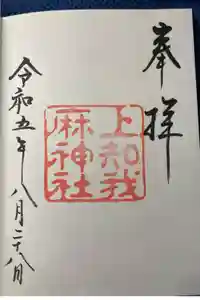 奉拝
上知我
麻神社
令和五年八月二十八日